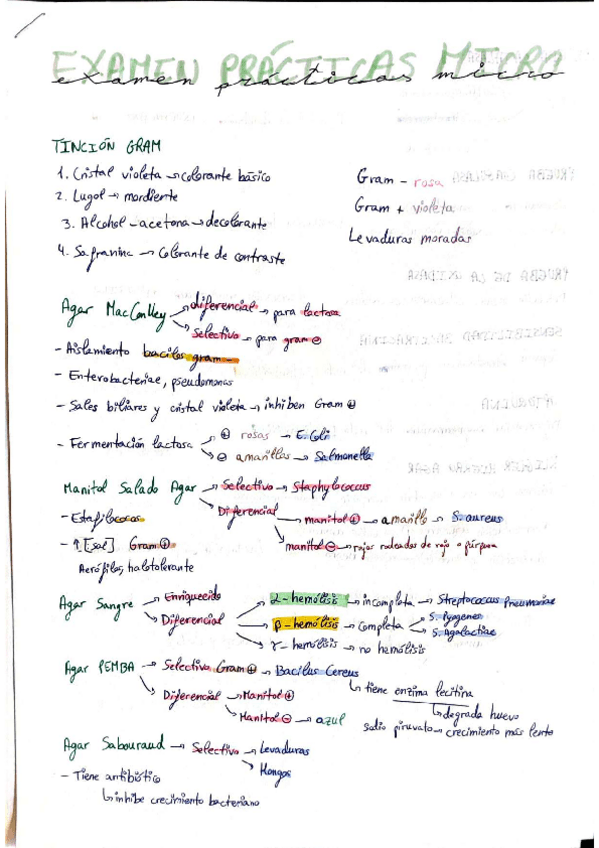 EXAMEN PRÁCTICAS MICRO
examen prácticas micro
TINCIÓN GRAM
1. Cristal violeta → colorante básico
2. Lugol → mordiente
3. Alcohol-acetona → decolorante
4. Safranina → Colorante de contraste
Gram - rosa
Gram + violeta
Levaduras moradas
Agar MacConlley → diferencial → para lactosa
→ Selectivo → para gram ⊖
- Aislamiento bacilos gram -
- Enterobacteriae, pseudomonas
- Sales biliares y cristal violeta → inhiben Gram ⊕
- Fermentación lactosa → ⊕ rosas → E. Coli
→ ⊖ amarillas → Salmonella
Manitol Salado Agar → Selectivo → Staphylococcus
→ Diferencial → manitol ⊕ → amarillo → S. aureus
→ manitol ⊖ → rojas rodeadas de rojo o púrpura
- Estafilococos
- ↑ [sal] Gram ⊕
Aerófilos, halotolerante
Agar Sangre → Enriquecido
→ Diferencial → α-hemólisis → incompleta → Streptococcus pneumoniae
→ β-hemólisis → completa → S. Pyogenes
→ S. Agalactiae
→ γ-hemólisis → no hemólisis
Agar PEMBA → Selectivo Gram ⊕ → Bacilus Cereus
↳ tiene enzima lecitina
↳ degrada huevo
→ Diferencial → Manitol ⊕
→ Manitol ⊖ → azul
sodio piruvato → crecimiento más lento
Agar Sabouraud → Selectivo → Levaduras
→ Hongos
- Tiene antibiótico
↳ inhibe crecimiento bacteriano